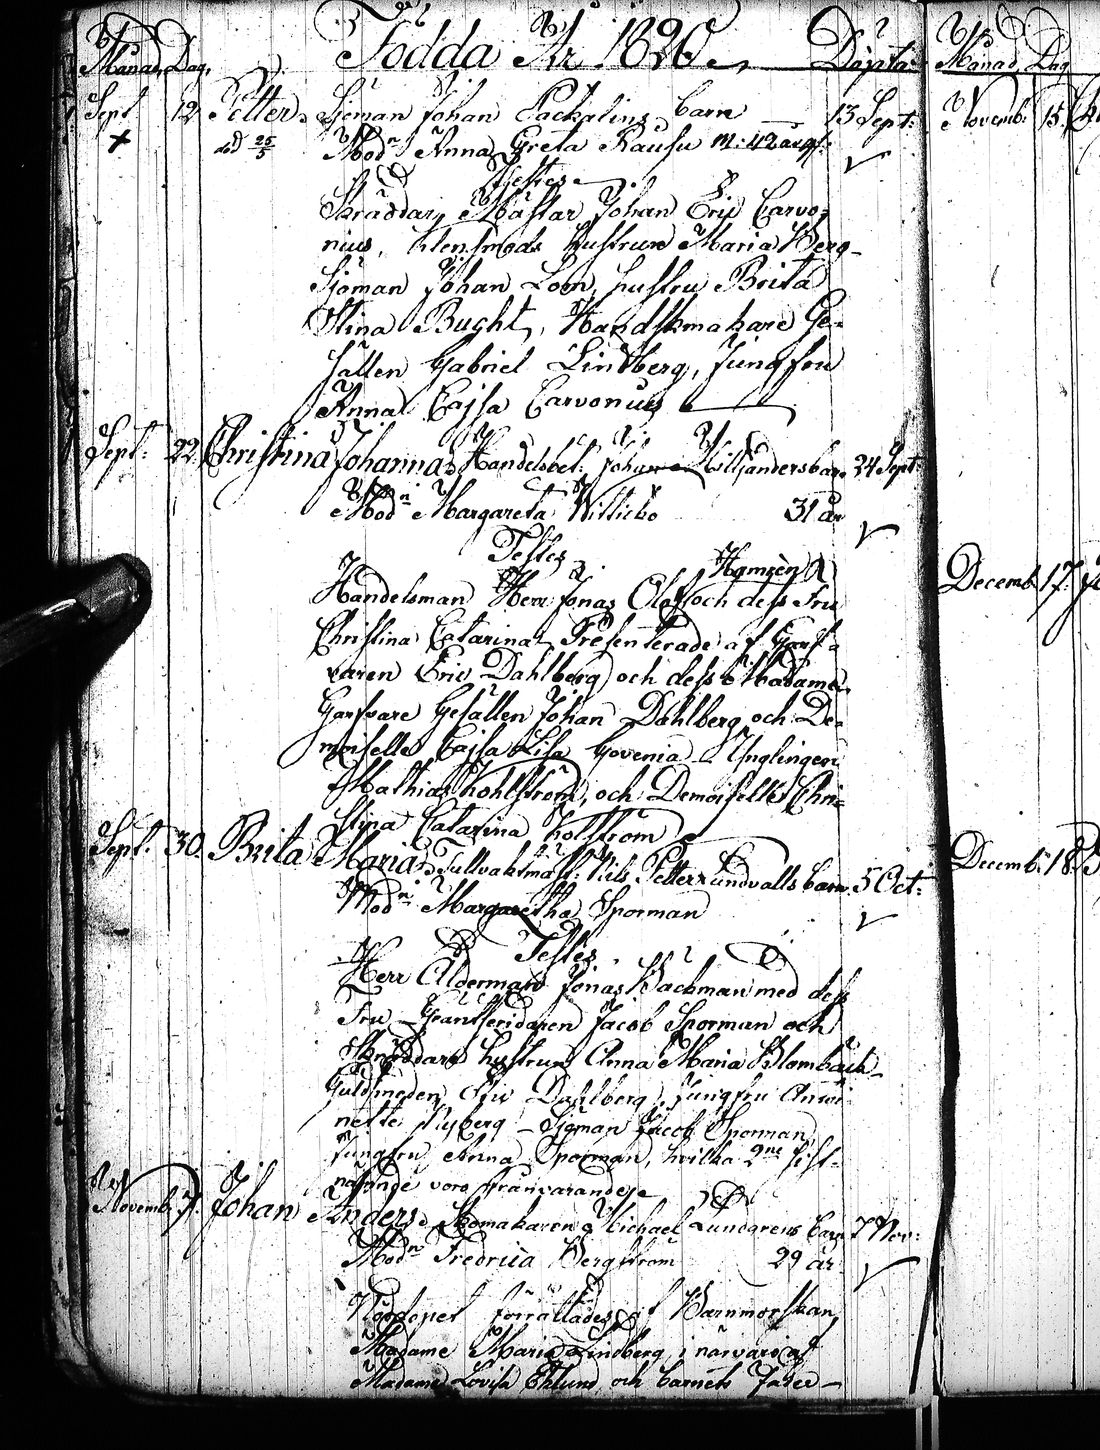 Månad Dag. Födda År 1820. Döpta
Sept 12 Petter. Sjöman Johan Packalins barn 13 Sept:
död 25/5 Modn Anna Greta Raufu m: 42 år gf:
Testes
Skräddar Mästar Johan Eric Carvo-
nius, hustrun Maria Berg-
Sjöman Johan Loon, hustru Brita
Stina Bught, Handskmakare Ge-
sällen Gabriel Lindberg, Jungfru
Anna Cajsa Carvonius
Sept: 22 Christina Johanna. Handelsbet: Johan Killjanders barn 24 Sept:
Modn Margareta Witticko 31 år
Testes Hamrèn
Handelsman Herr Jonas Olof och dess Fru
Christina Catarina Presenterade af Garfva
varen Eric Dahlberg och dess Madame
Garfvare Gesällen Johan Dahlberg och De-
moiselle Cajsa Lisa Govenia Ynglingen
Mathias Kohlström, och Demoiselle Chri-
stina Catarina Kolström
Sept. 30. Brita Maria. Tullvaktmäst: Nils Petter Lundvalls barn 5 Oct:
Modn Margaretha Sporman
Testes.
Herr Ålderman Jonas Backman med dess
Fru Jacob Sporman och
Skräddare hustrun Anna Maria Blombäck
Guldsmeden Eric Dahlberg, Jungfru Anna
nette Nyberg - Sjöman Jacob Sporman,
Jungfru Anna Sporman, hvilka 2ne sist-
nämnde voro frånvarande
Novemb: 7. Johan Anders. Skomakaren Michael Lundgrens barn 7 Nov:
Modn Fredrica Bergström 29 år
Nöddopet förrättades af Barnmorskan
Madame Maria Lindberg i närvaro af
Madame Lovisa Eklund och barnets Fader
Månad Dag
Novemb: 15.
Decemb: 17.
Decemb: 18.